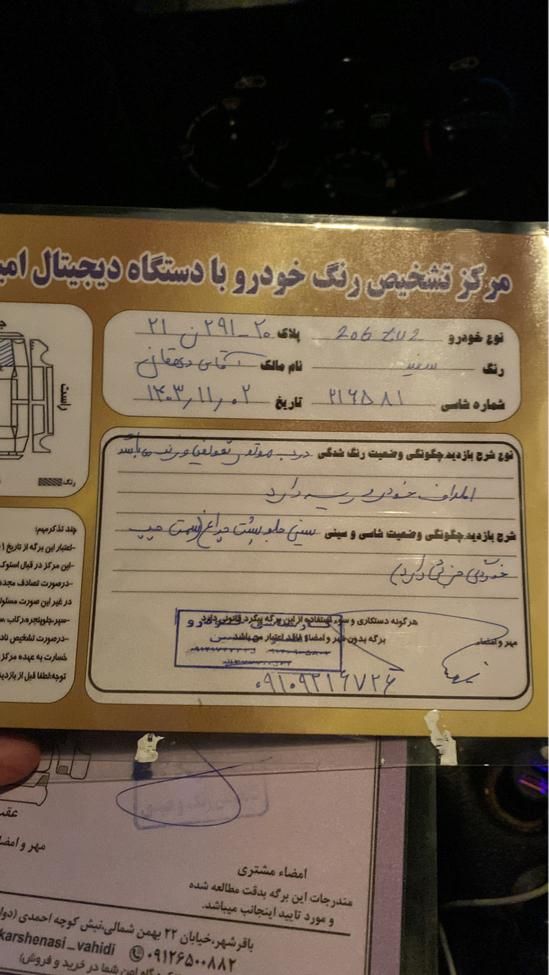 مرکز تشخیص رنگ خودرو با دستگاه دیجیتال
نوع خودرو 206 tu2 پلاک ۲۰_۲۹۱ن۲۱
رنگ سفید نام مالک آقای دهقان
شماره شاسی ۲۱۶۵۸۱ تاریخ ۱۴۰۳,۱۱,۰۲
راست
رنگ
نوع شرح بازدید، چگونگی وضعیت رنگ شدگی درب موتور تعویض و رنگ میباشد
اطراف خودرو
شرح بازدید، چگونگی وضعیت شاسی و سینی سینی جلو پشت چراغ سمت چپ
خوردگی جزئی دارد
هرگونه دستکاری و سوء استفاده از این برگه پیگرد قانونی دارد
برگه بدون مهر و امضاء فاقد اعتبار می باشد
مهر و امضاء
۰۹۱۰۹۲۱۶۷۲۶
چند تذکر مهم:
-اعتبار این برگه از تاریخ
-این مرکز در قبال
-درصورت تصادف مجدد
در غیر این صورت
-درصورت تشخیص
خسارت به عهده مرکز
توجه:لطفا قبل از بازدید
عقب
مهر و امضا
امضاء مشتری
مندرجات این برگه بدقت مطالعه شده
و مورد تایید اینجانب میباشد.
باقرشهر،خیابان ۲۲ بهمن شمالی،نبش کوچه احمدی
karshenasi_vahidi ۰۹۱۲۶۵۰۰۸۸۲
امن شما در خرید و فروش)